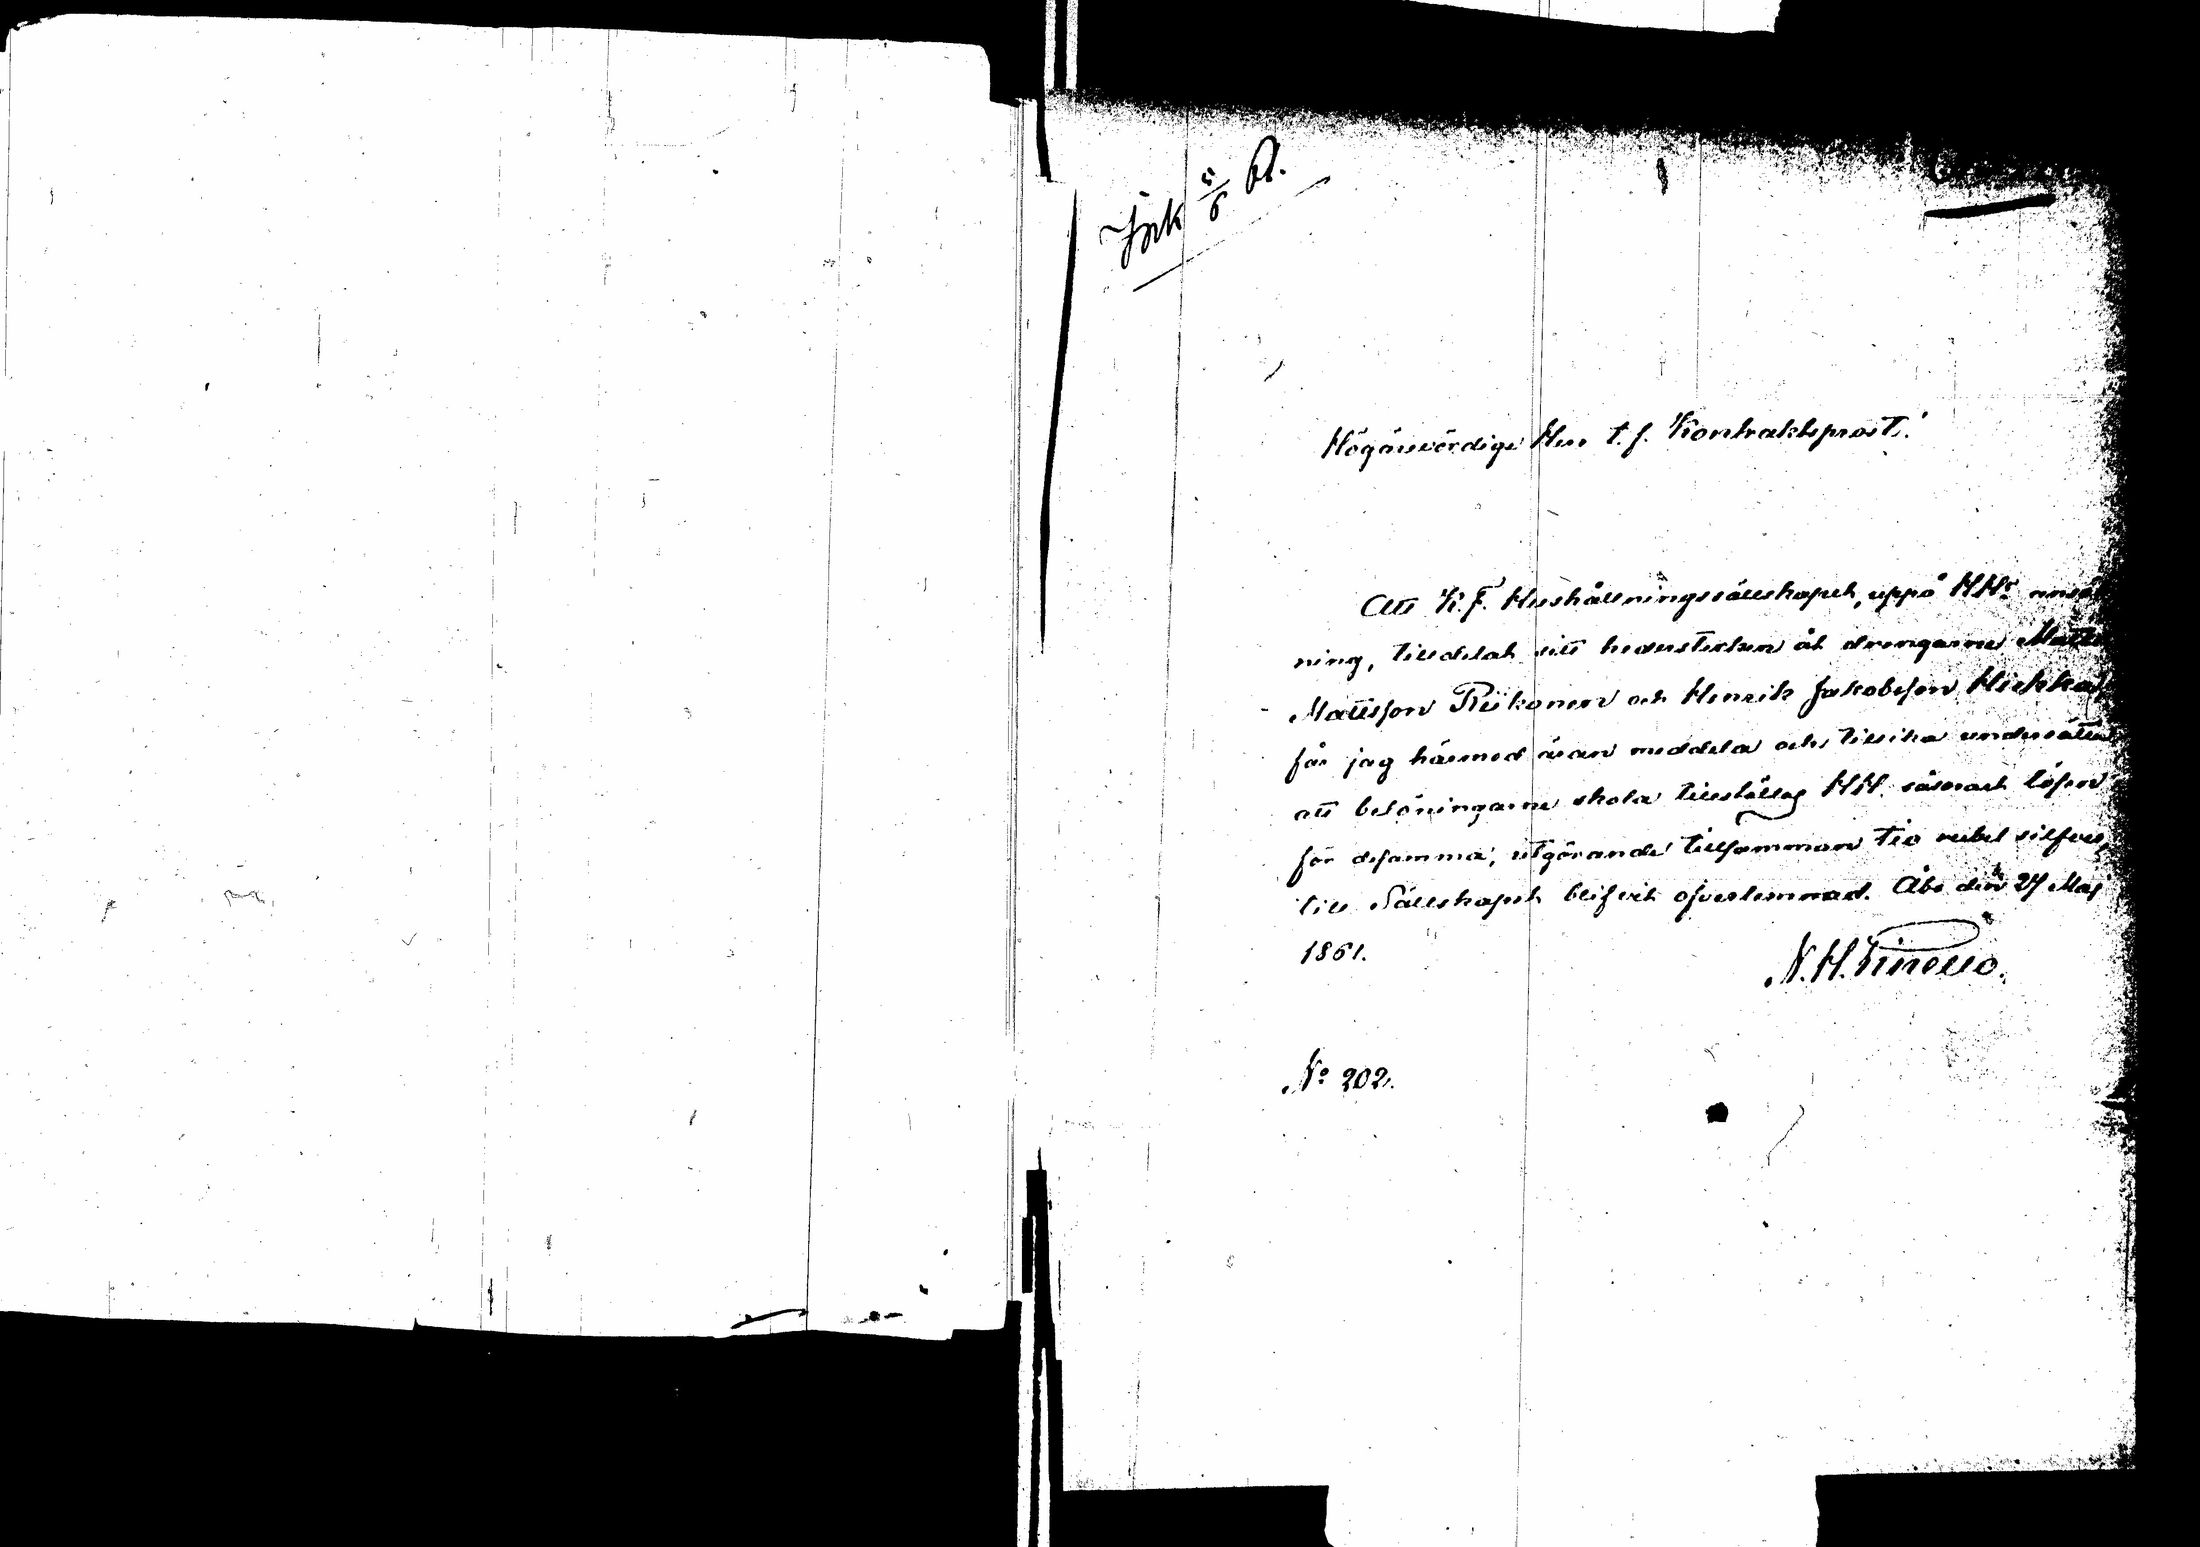 Ink 5/6 61.
Högärevördige Herr t. f. Kontraktsprost!
Att K. F. Hushållningssällskapet, uppå HHs anmäl
ning, tilldelat sitt hederstecken åt drengarne Matts
Mattsson Riikonen och Henrik Jakobsson Hiekka,
får jag härmed äran meddela och tillika underrätta
att belöningarne skola tillställas HH. såsnart lösen
för desamma, utgörande tillsamman tio rubel silfver,
till Sällskapet blifvit öfverlemnad. Åbo den 27 Maj
1861.
N. H. Pinello.
No 202.